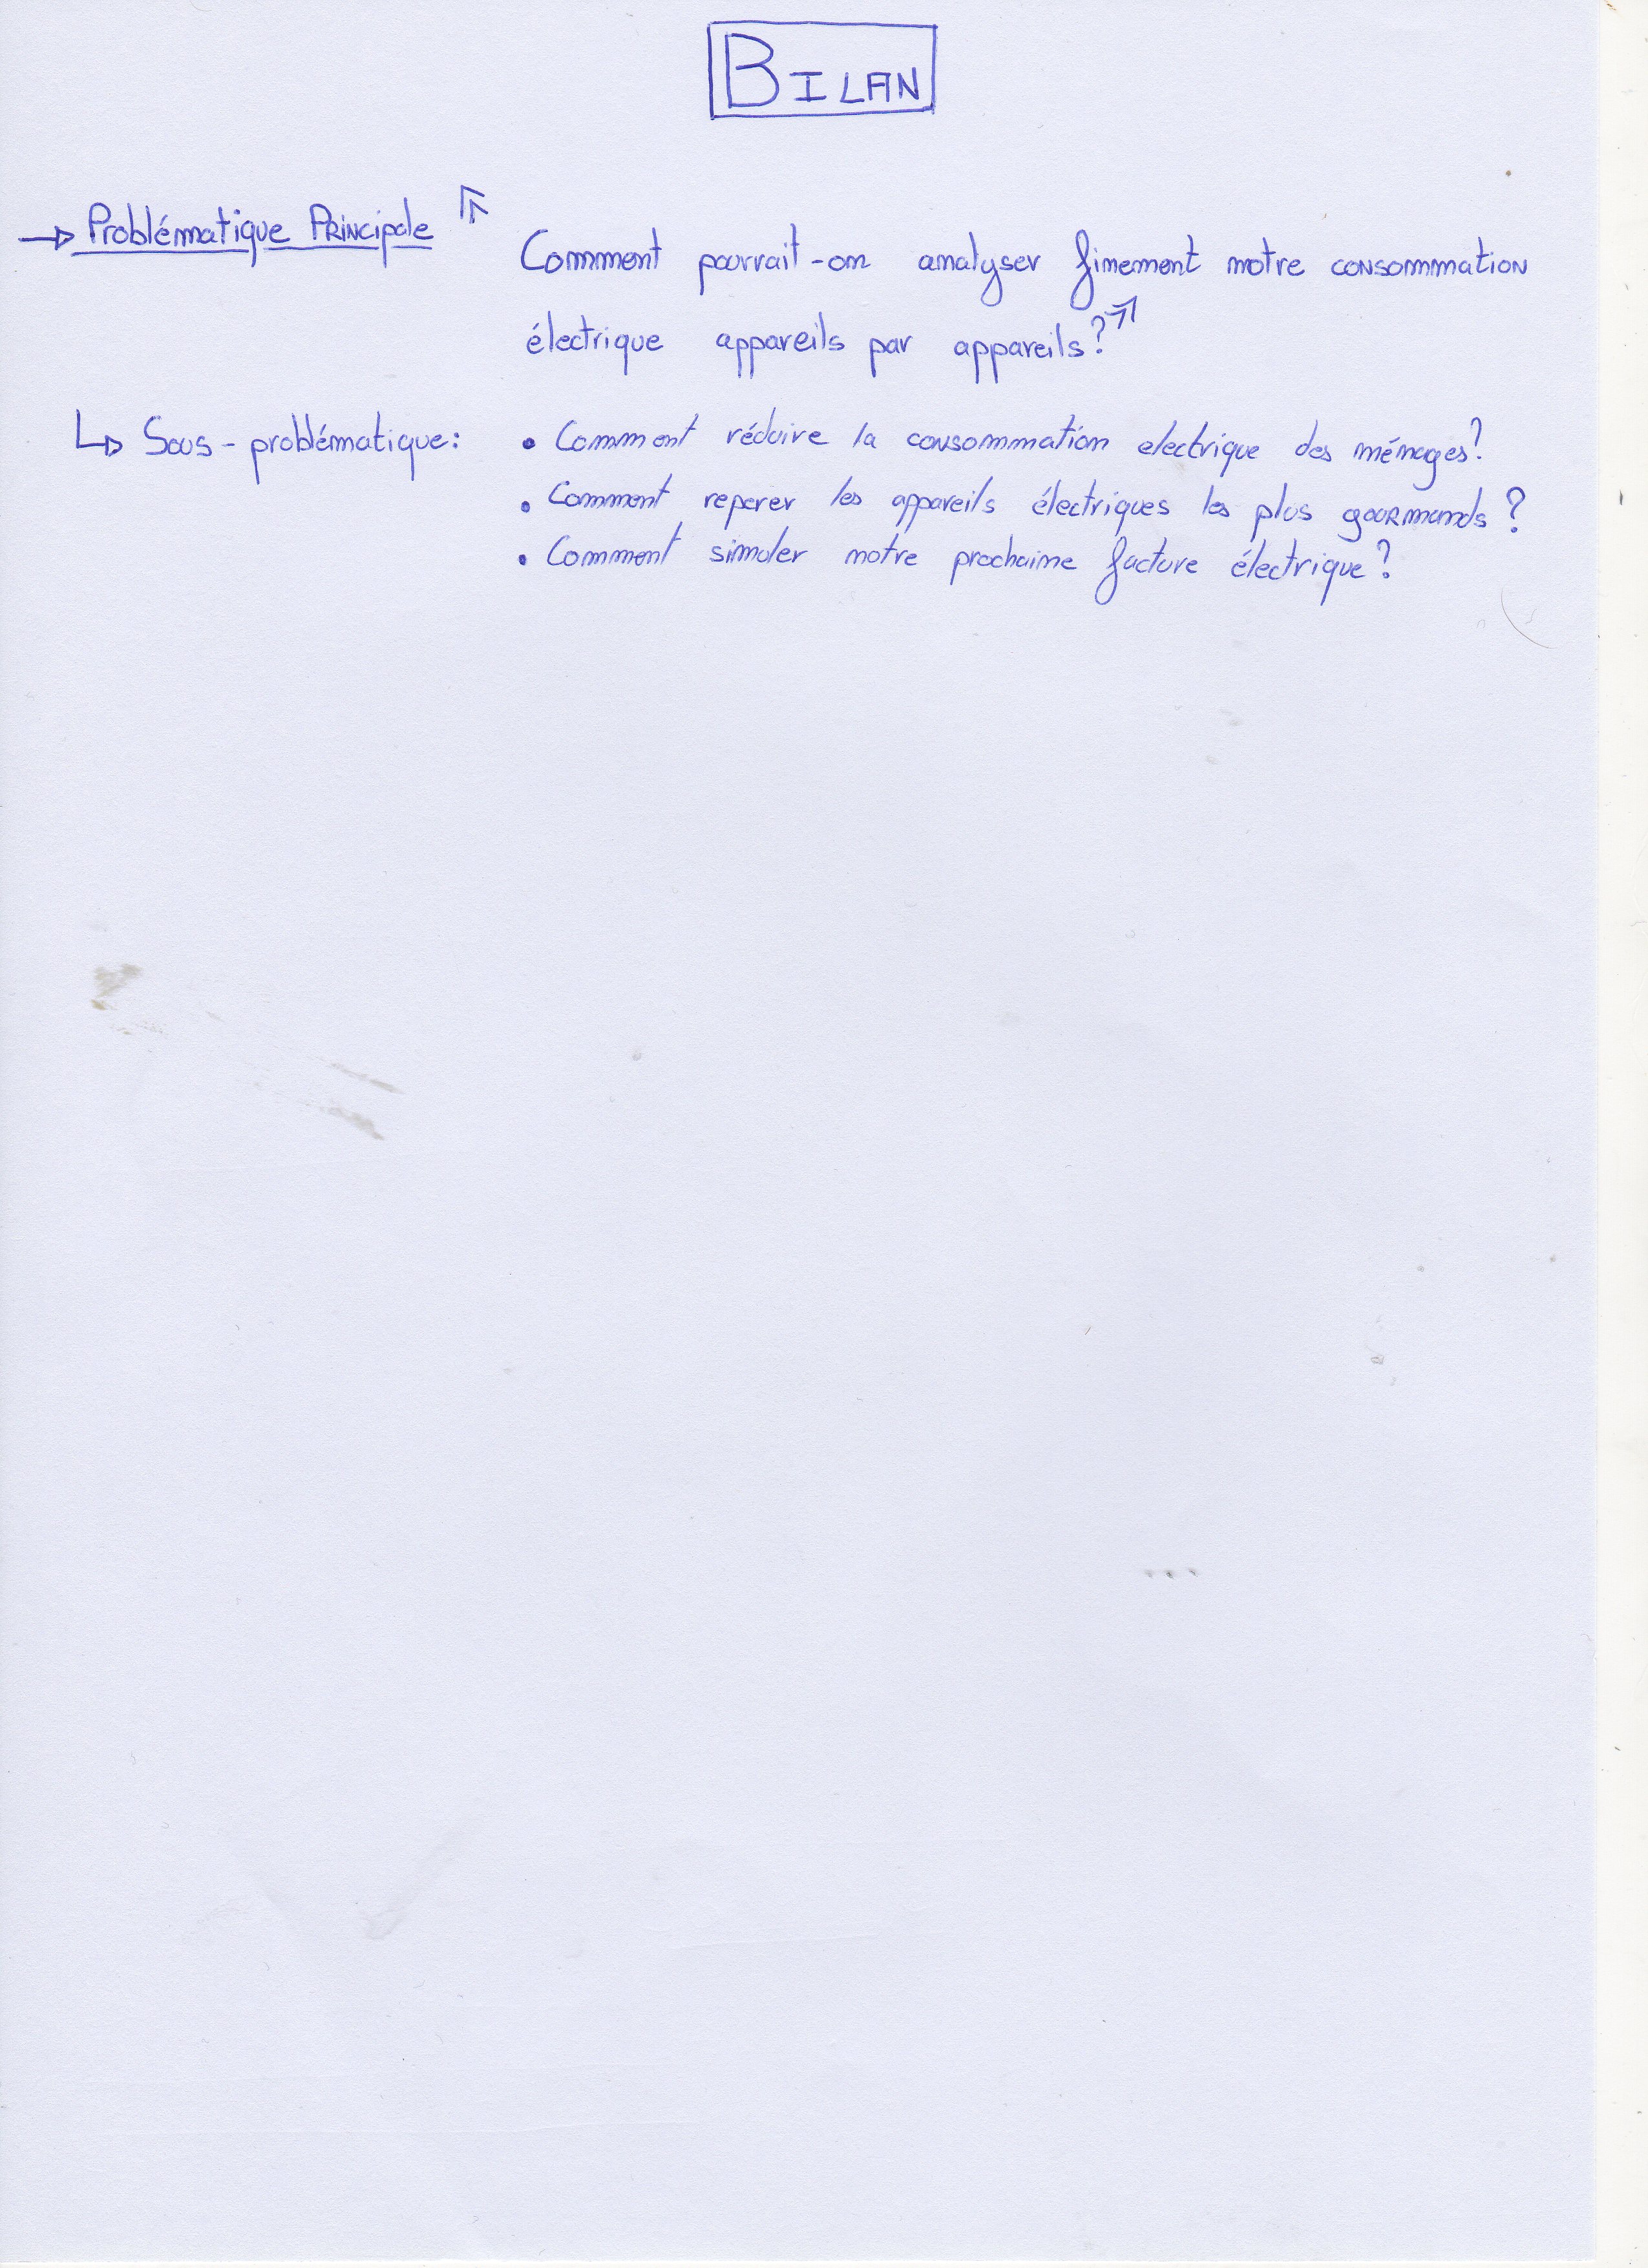 BILAN
→ Problématique Principale « Comment pourrait-on analyser finement notre consommation
électrique appareils par appareils? »
↳ Sous-problématique: • Comment réduire la consommation electrique des ménages?
• Comment reperer les appareils électriques les plus gourmands?
• Comment simuler notre prochaine facture électrique?